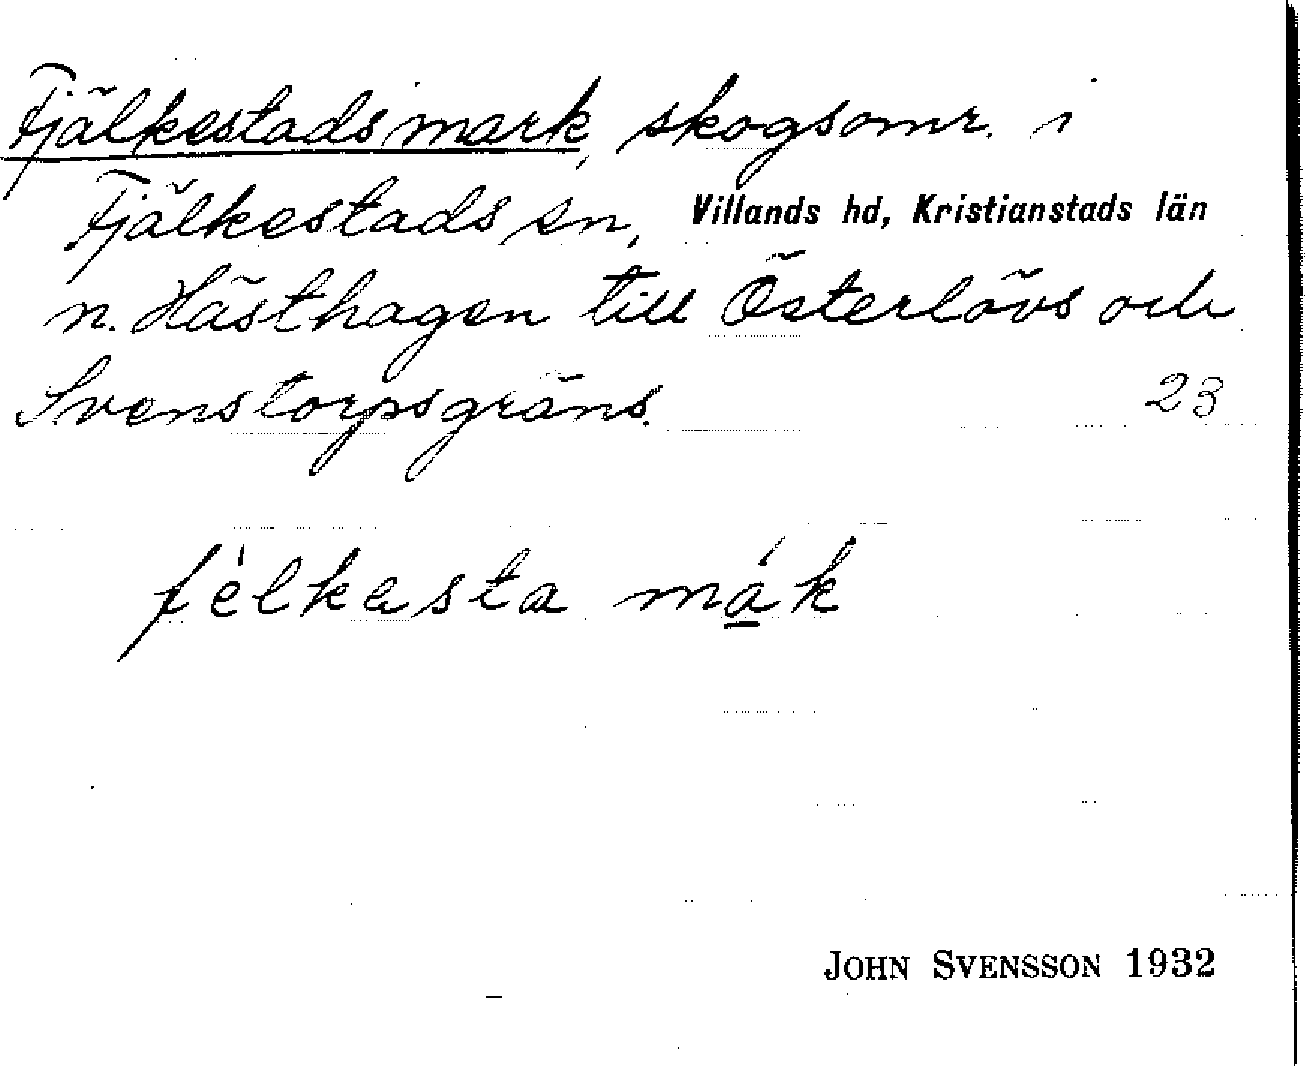 Fjälkestads mark, skogsomr. i
Fjälkestads sn, Villands hd, Kristianstads län
n. Hästhagen till Österlövs och
Svenstorpsgräns. 23
fèlkesta mák
JOHN SVENSSON 1932